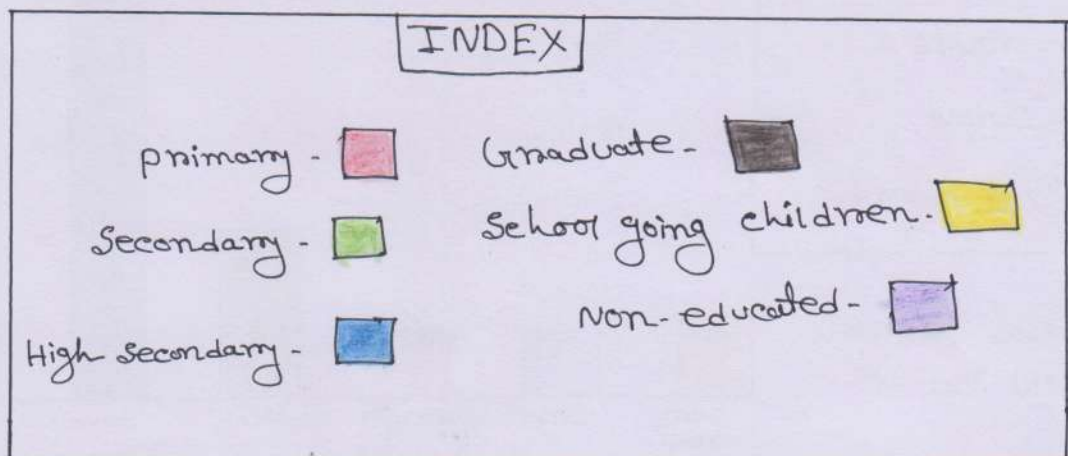 INDEX
Primary -
Secondary -
High Secondary -
Graduate -
School going children -
Non-educated -